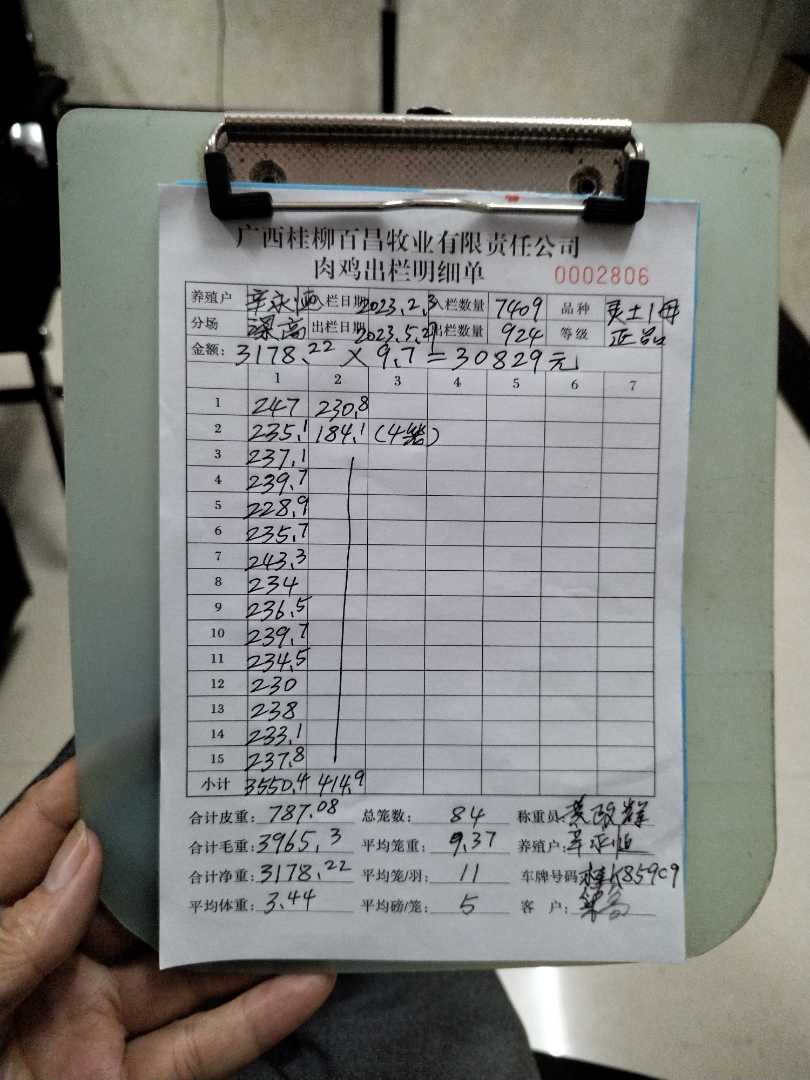 广西桂柳百昌牧业有限责任公司
肉鸡出栏明细单 0002806
养殖户 辛永恒 入栏日期 2023.2.3 入栏数量 7409 品种 灵土1母
分场 深高 出栏日期 2023.5.29 出栏数量 924 等级 正品
金额: 3178.22 × 9.7 = 30829元
1 2 3 4 5 6 7
1 247 230.8
2 235.1 184.1 (4笼)
3 237.1
4 239.7
5 228.9
6 235.7
7 243.3
8 234
9 236.5
10 239.7
11 234.5
12 230
13 238
14 233.1
15 237.8
小计 3550.4 414.9
合计皮重: 787.08 总笼数: 84 称重员: 黄政群
合计毛重: 3965.3 平均笼重: 9.37 养殖户: 辛永恒
合计净重: 3178.22 平均笼/羽: 11 车牌号码: 桂K859C9
平均体重: 3.44 平均磅/笼: 5 客 户: